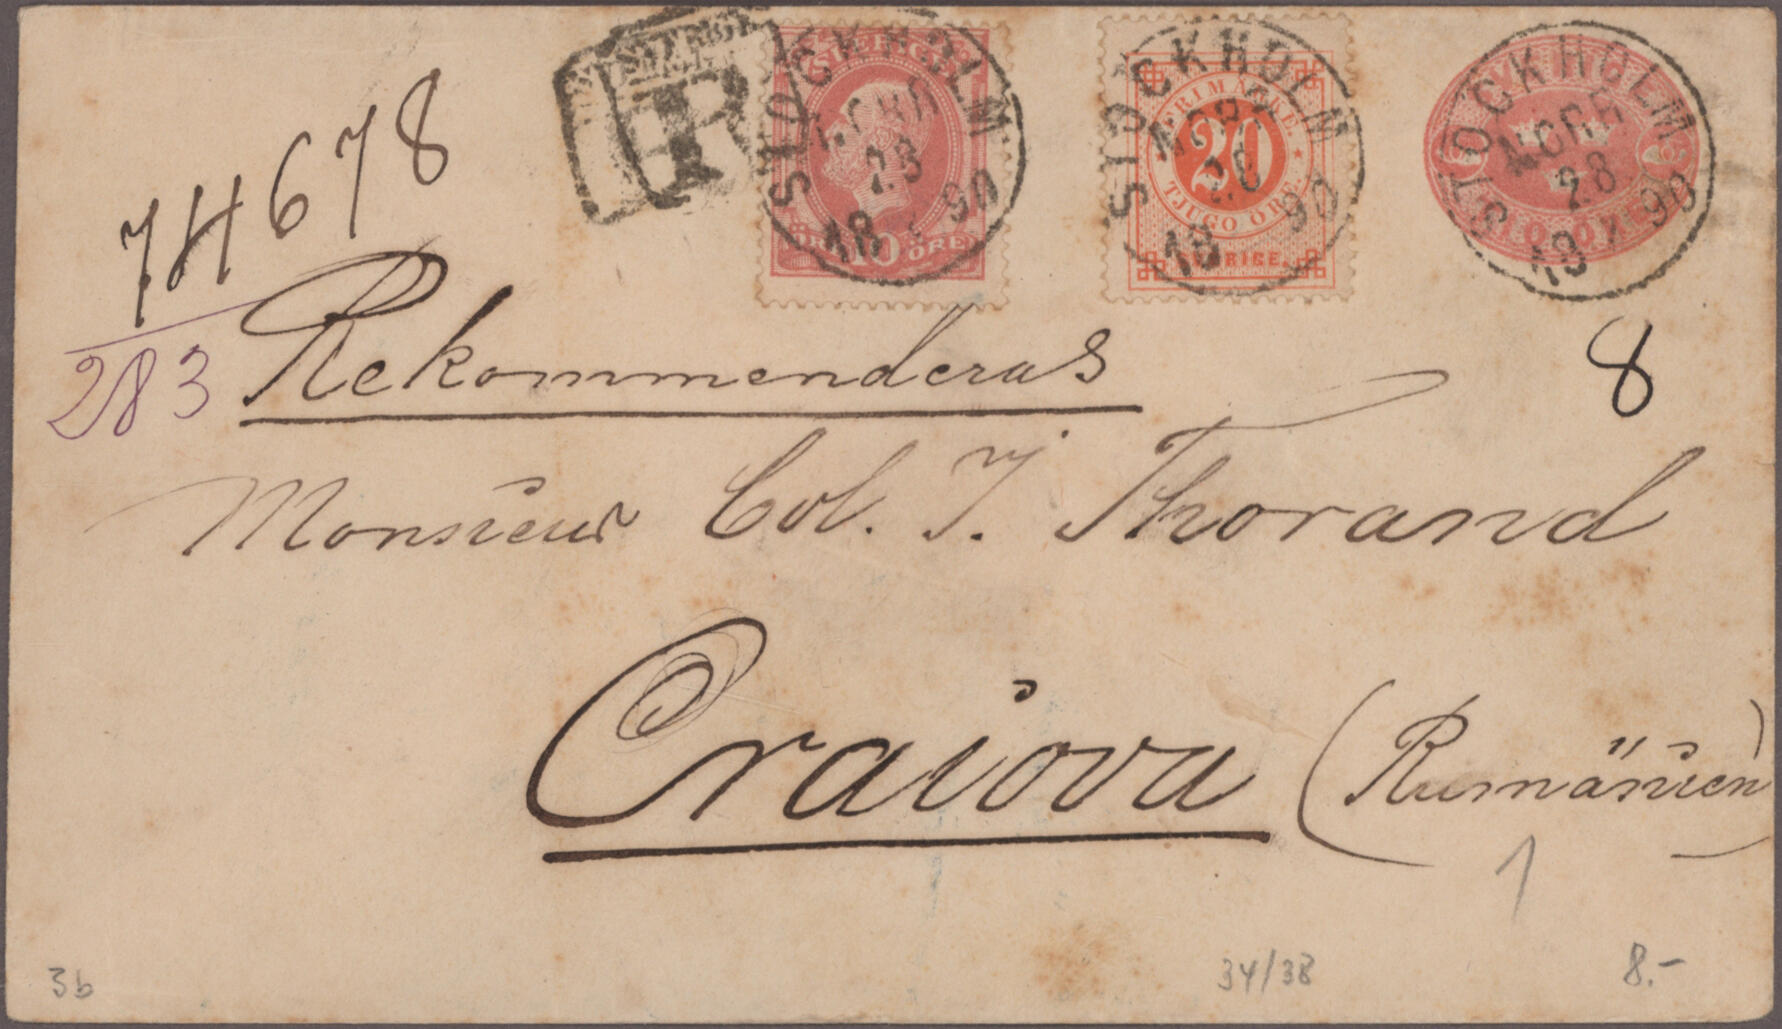 R
SVERIGE
10 ÖRE
STOCKHOLM
NORR
28
18 90
FRIMÄRKE
20
TJUGO ÖRE
SVERIGE
STOCKHOLM
NORR
28
18 90
STOCKHOLM
NORR
28
18 90
74678
283
Rekommenderas
8
Monsieur Col. J. Thorand
Craiova (Rumänien)
1
3b
34/38
8.-